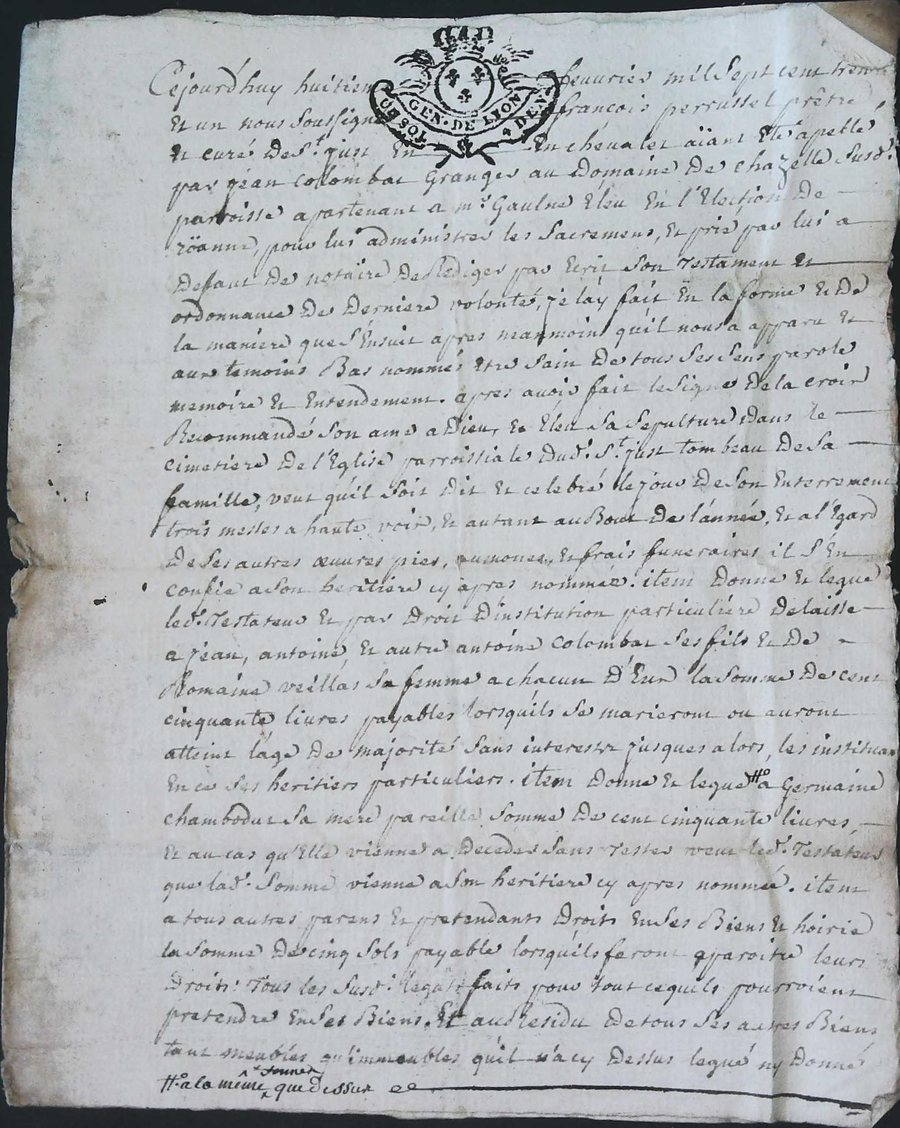 GEN. DE LYON
UN SOL 4 DEN.
Cejourd'huy huitiem feuurier mil sept cent trente
Et un nous soussigné françois perrussel prêtre
Et curé De St. just En En chevalet aïant Eté apellé
par jean colombat Granger au Domaine De chazelle susd.
parroisse apartenant a mr. Gaulne Eleu En l'Election De
röanne, pour lui administrer les sacremens, Et prié par lui a
Defaut De notaire De Rediger par Ecrit son testament Et
ordonnance De Derniere volonté, je lay fait En la forme Et De
la maniere que s'Ensuit apres neanmoins qu'il nous a apparu Et
aux temoins Bas nommés Etre sain De tous ses sens parole
memoire Et Entendement. apres avoir fait le signe De la croix
Recommandé son ame a Dieu, Et Eleu sa sepulture Dans le
cimetiere De l'Eglise parroissiale Dud. St. just tombeau De sa
famille, veut qu'il soit Dit Et celebré le jour De son Enterrement
trois messes a haute voix, Et autant au Bout De l'année, Et a l'Egard
De ses autres œuvres pies, aumones, Et frais funeraires il s'En
confie a son heritiere cy apres nommée. item Donne Et legue
led. Testateur Et par Droit D'institution particuliere Delaisse
a jean, antoine, Et autre antoine colombat ses fils Et De
Romaine veillas sa femme a chacun D'Eux la somme De cent
cinquante livres payables lorsqu'ils se marieront ou auront
atteint l'age De majorité sans interest jusques alors, les instituant
En ce ses heritiers particuliers. item Donne Et legue #o a Germaine
chambodut sa mere pareille somme De cent cinquante livres,
Et au cas qu'Elle vienne a Deceder sans Tester veut led. Testateur
que lad. somme vienne a son heritiere cy apres nommée. item
a tous autres parens Et pretendants Droits En ses Biens Et hoirie
la somme De cinq sols payable lorsqu'ils feront aparoitre leurs
Droits. Tous les susd. legats faits pour tout ce qu'ils pourroient
pretendre En ses Biens. Et au Residu De tous ses autres Biens
tant meubles qu'immeubles qu'il n'a cy Dessus legué ny Donné
#o a la meme que Dessus